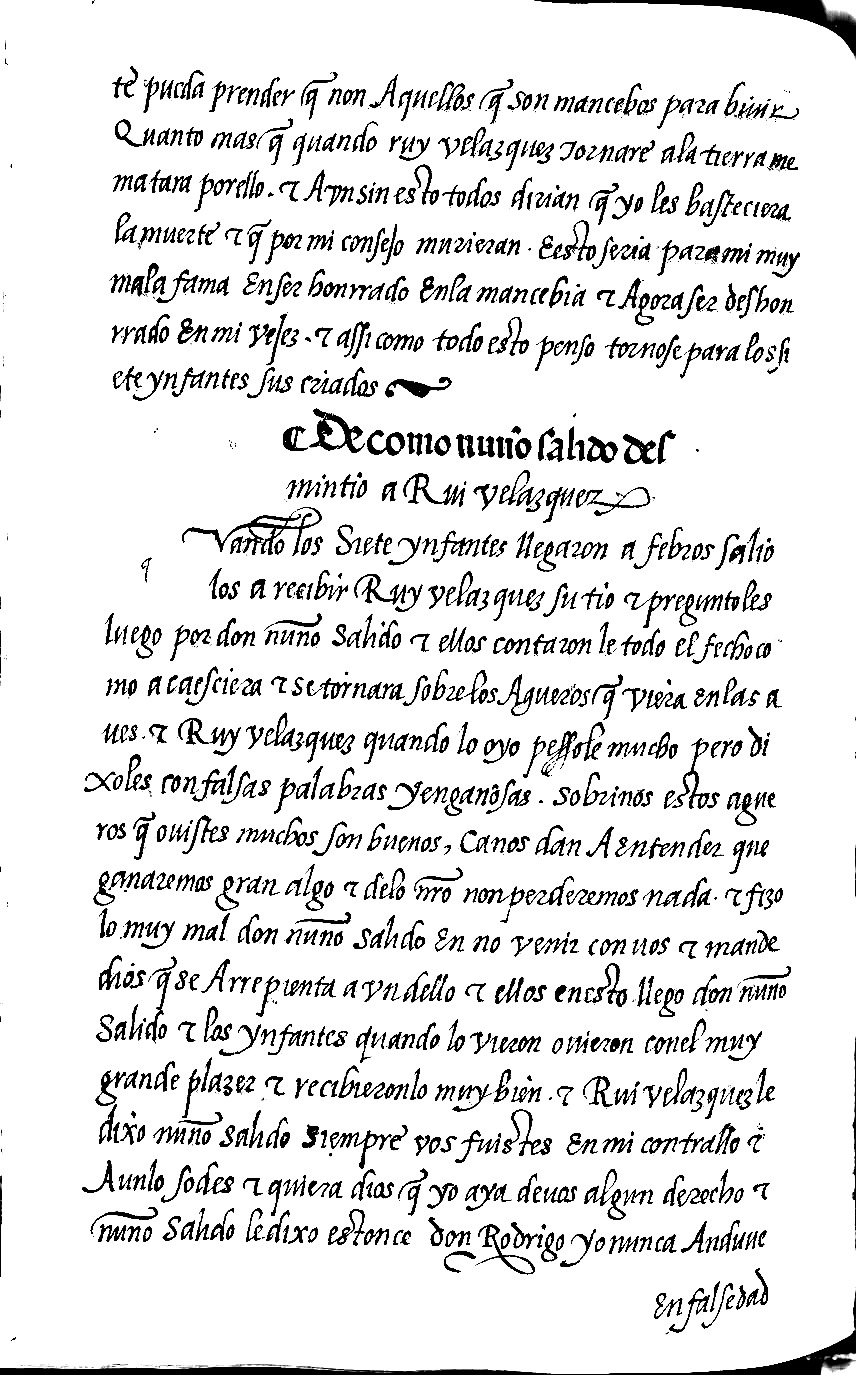 te pueda prender q̃ non Aquellos q̃ son mancebos para biuir
Quanto mas q̃ quando ruy velazquez tornare ala tierra me
matara porello. τ Avn sin esto todos dirian q̃ yo les basteciera
la muerte τ q̃ por mi consejo murieran. E esto seria para mi muy
mala fama En ser honrrado En la mancebia τ Agora ser deshon
rrado En mi vejez. τ assi como todo esto penso tornose para los si
ete ynfantes sus criados
De como nuño salido des
mintio a Rui velazquez
Vando los Siete ynfantes llegaron a febros salio
q
los a recibir Ruy velazquez su tio τ preguntoles
luego por don nuño Salido τ ellos contaron le todo el fecho co
mo a caesciera τ se tornara sobre los Agueros q̃ viera en las a
ues. τ Ruy velazquez quando lo oyo pessole mucho pero di
xoles con falsas palabras y enganosas. sobrinos estos ague
ros q̃ ouistes muchos son buenos, Ca nos dan A Entender que
ganaremos gran algo τ delo nr̃o non perderemos nada. τ fizo
lo muy mal don nuño Salido En no venir con uos τ mande
dios q̃ se Arrepienta a vn dello τ ellos en esto llego don nuño
Salido τ los ynfantes quando lo vieron ouieron conel muy
grande plazer τ recibieronlo muy bien. τ Rui velazquez le
dixo nuño Salido siempre vos fuistes En mi contrallo τ
Aunlo sodes τ quiera dios q̃ yo aya deuos algun derecho τ
nuño Salido le dixo estonce don Rodrigo yo nunca Anduue
En falsedad